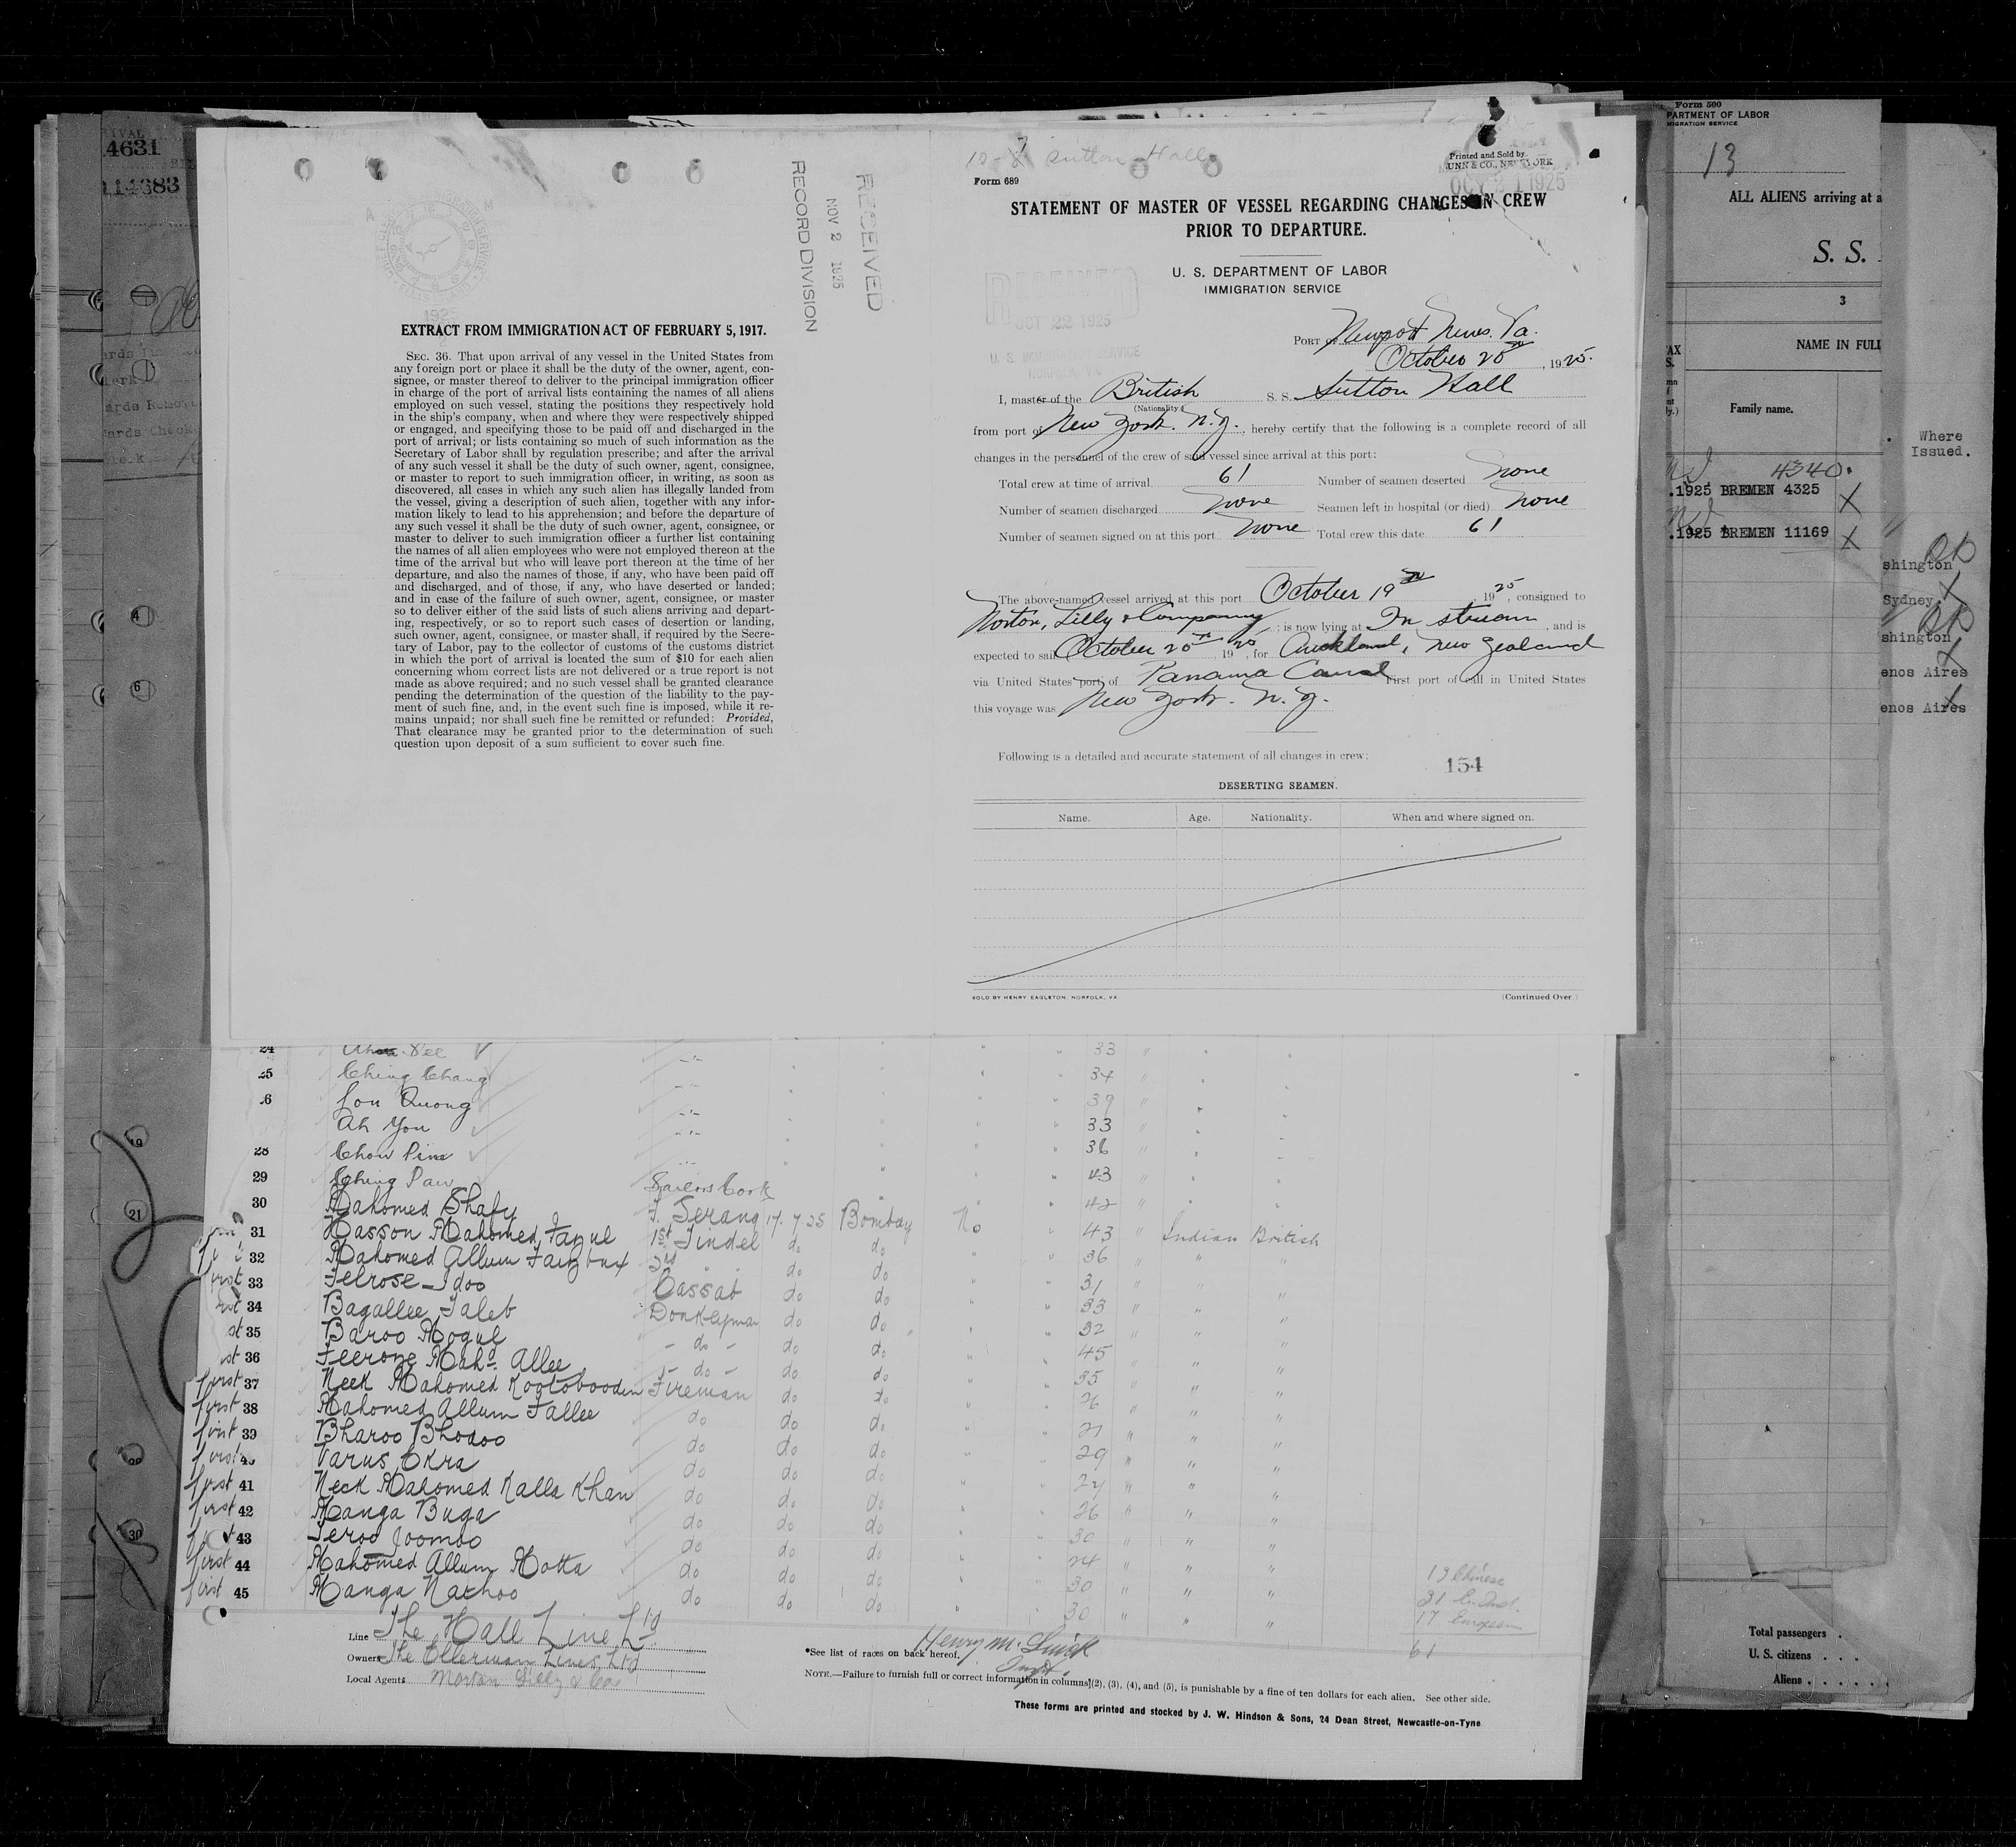 EXTRACT FROM IMMIGRATION ACT OF FEBRUARY 5, 1917.
SEC. 36. That upon arrival of any vessel in the United States from
any foreign port or place it shall be the duty of the owner, agent, con-
signee, or master thereof to deliver to the principal immigration officer
in charge of the port of arrival lists containing the names of all aliens
employed on such vessel, stating the positions they respectively hold
in the ship's company, when and where they were respectively shipped
or engaged, and specifying those to be paid off and discharged in the
port of arrival; or lists containing so much of such information as the
Secretary of Labor shall by regulation prescribe; and after the arrival
of any such vessel it shall be the duty of such owner, agent, consignee,
or master to report to such immigration officer, in writing, as soon as
discovered, all cases in which any such alien has illegally landed from
the vessel, giving a description of such alien, together with any infor-
mation likely to lead to his apprehension; and before the departure of
any such vessel it shall be the duty of such owner, agent, consignee, or
master to deliver to such immigration officer a further list containing
the names of all alien employees who were not employed thereon at the
time of the arrival but who will leave port thereon at the time of her
departure, and also the names of those, if any, who have been paid off
and discharged, and of those, if any, who have deserted or landed;
and in case of the failure of such owner, agent, consignee, or master
so to deliver either of the said lists of such aliens arriving and depart-
ing, respectively, or so to report such cases of desertion or landing,
such owner, agent, consignee, or master shall, if required by the Secre-
tary of Labor, pay to the collector of customs of the customs district
in which the port of arrival is located the sum of $10 for each alien
concerning whom correct lists are not delivered or a true report is not
made as above required; and no such vessel shall be granted clearance
pending the determination of the question of the liability to the pay-
ment of such fine, and, in the event such fine is imposed, while it re-
mains unpaid; nor shall such fine be remitted or refunded: Provided,
That clearance may be granted prior to the determination of such
question upon deposit of a sum sufficient to cover such fine.
RECEIVED
NOV 2 1925
RECORD DIVISION
Sutton Hall
Form 689
Printed and Sold by
UNN & CO., NEW YORK
OCT 21 1925
STATEMENT OF MASTER OF VESSEL REGARDING CHANGES IN CREW
PRIOR TO DEPARTURE.
U. S. DEPARTMENT OF LABOR
IMMIGRATION SERVICE
RECEIVED
OCT 22 1925
U. S. IMMIGRATION SERVICE
NORFOLK, VA.
PORT of Newport News. Va.
October 20th, 1925.
I, master of the British S. S. Sutton Hall
(Nationality)
from port of New York. N.Y., hereby certify that the following is a complete record of all
changes in the personnel of the crew of said vessel since arrival at this port:
Total crew at time of arrival 61 Number of seamen deserted none
Number of seamen discharged none Seamen left in hospital (or died) none
Number of seamen signed on at this port none Total crew this date 61
The above-named vessel arrived at this port October 19th, 1925, consigned to
Norton, Lilly & Company; is now lying at In stream, and is
expected to sail October 20th, 1925, for Auckland, New Zealand
via United States port of Panama Canal First port of call in United States
this voyage was New York. N.Y.
Following is a detailed and accurate statement of all changes in crew:
154
DESERTING SEAMEN.
Name. Age. Nationality. When and where signed on.
SOLD BY HENRY EAGLETON, NORFOLK, VA. (Continued Over.)
24 33
25 Ching Chang 34
26 Lou Quong 39
Ah You 33
28 36
29 Ching Paw 43
30 Mahomed Shafy 42
31 Hasson Mahomed 43 Indian British
32 Mahomed Allum 36
33 Felrose Idoo Cassab do do 31
34 Bagallee Taleb Donkeyman do do 33
35 Baroo Mogul do do do 32
36 Feeroze Mahd. Allee do do do 45
37 Neek Mahomed Kootobooden Fireman do do 35
38 Mahomed Allum Fallee do do do 26
39 Bharoo Bhodoo do do do
40 Varus Okra do do do 29
41 Neck Mahomed Kalla Khan do do do
42 Manga Buga do do do 26
43 Jeroo Joomoo do do do 30
44 Mahomed Allum Motta do do do 24
45 Manga Nathoo do do do 30
Sailors Cook
Serang 17.7.25 Bombay No
1st Tindel do do
13 Chinese
31 E. Ind.
17 European
61
Line The Hall Line Ltd
Owners The Ellerman Lines Ltd
Local Agents Norton Lilly & Co
Henry M.
*See list of races on back hereof.
NOTE.—Failure to furnish full or correct information in columns (2), (3), (4), and (5), is punishable by a fine of ten dollars for each alien. See other side.
These forms are printed and stocked by J. W. Hindson & Sons, 24 Dean Street, Newcastle-on-Tyne
Form 500
PARTMENT OF LABOR
MIGRATION SERVICE
13
ALL ALIENS arriving at a
S. S.
3
NAME IN FULL
Family name.
4340.
.1925 BREMEN 4325
.1925 BREMEN 11169
Where
Issued.
shington
Sydney.
shington
enos Aires
enos Aires
Total passengers .
U. S. citizens . . .
Aliens . . . . . .